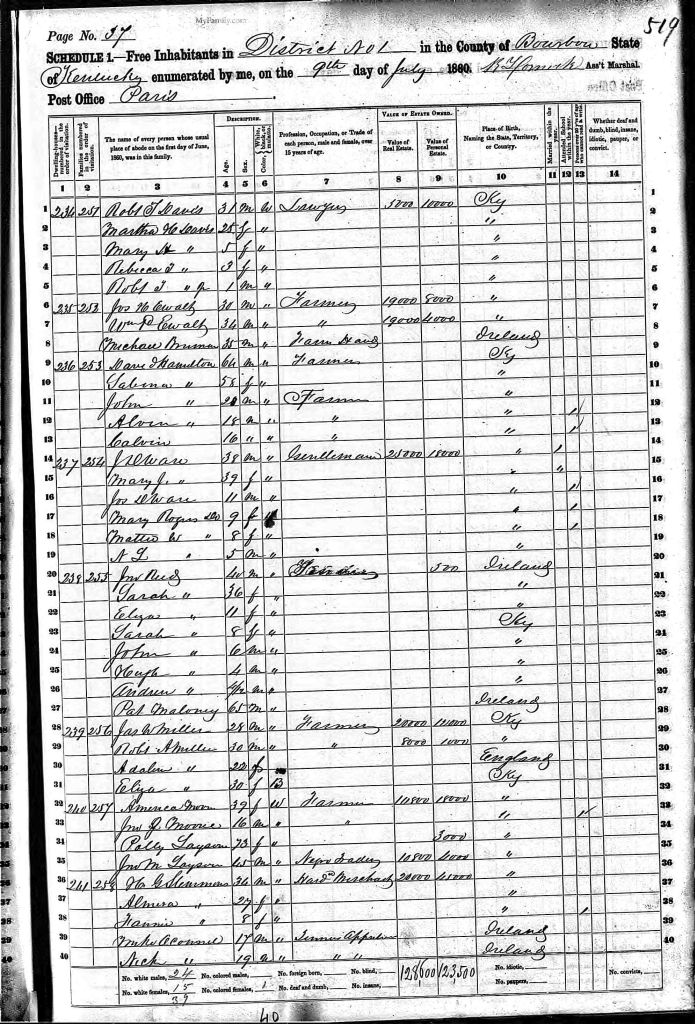 MyFamily.com
519
Page No. 37
SCHEDULE 1.—Free Inhabitants in District No 1 in the County of Bourbon State
of Kentucky enumerated by me, on the 9th day of July 1860. Ass't Marshal.
Post Office Paris
Dwelling-houses numbered in the order of visitation. Families numbered in the order of visitation. The name of every person whose usual place of abode on the first day of June, 1860, was in this family. DESCRIPTION. Age. Sex. Color, White, black, or mulatto. Profession, Occupation, or Trade of each person, male and female, over 15 years of age. VALUE OF ESTATE OWNED. Value of Real Estate. Value of Personal Estate. Place of Birth, Naming the State, Territory, or Country. Married within the year. Attended School within the year. Whether deaf and dumb, blind, insane, idiotic, pauper, or convict.
1 2 3 4 5 6 7 8 9 10 11 12 13 14
1 234 251 Robt T Davis 31 m W Lawyer 5000 10000 Ky 1
2 Martha H Davis 25 f " " 2
3 Mary H " 5 f " " 3
4 Rebecca T " 3 f " " 4
5 Robt T " Jr 1 m " " 5
6 235 252 Jos H Ewalt 30 m " Farmer 19000 8000 " 6
7 Ewalt 34 m " " 19000 4000 " 7
8 Michael 35 m " Farm Hand Ireland 8
9 236 253 Hamilton 64 m " Farmer Ky 9
10 Sabina " 58 f " " 10
11 John " 21 m " Farmer " 11
12 Alvin " 18 m " " " 1 12
13 Calvin 16 " " " " 1 13
14 237 254 Ware 38 m " Gentleman 25000 18000 " 1 14
15 Mary J. " 39 f " " " 15
16 Jos Ware 11 m " " 1 16
17 Mary Rogers Do 9 f " " 1 17
18 Mattie W " 8 f " " 1 18
19 N L " 5 m " " 19
20 238 255 Jno Reed 40 m " 500 Ireland 20
21 Sarah " 36 f " " 21
22 Eliza " 11 f " " 22
23 Sarah " 8 f " Ky 23
24 John " 6 m " " 24
25 Hugh " 4 m " " 25
26 Andrew " m " " 26
27 Pat Maloney 65 m " Ireland 27
28 239 256 Jas W Miller 28 m " Farmer 20000 Ky 28
29 Robt A Miller 30 m " " 8000 1000 " 29
30 Adalin " 22 f England 30
31 Eliza " 30 f B Ky 31
32 240 257 America Moore 39 f W Farmer 10800 18000 " 32
33 Jno J. Moore 16 m " " " 1 33
34 Polly Layson 73 f " 3000 " 34
35 Jno M Layson 45 m " Negro Trader 10800 4000 " 35
36 241 258 H G Slemmons 36 m " Hard Merchant 20000 " 36
37 Almira " 27 f " " 37
38 Fannie " 8 f " " 1 38
39 17 m " Ireland 39
40 Nick " 19 m " " " Ireland 40
No. white males, 24 No. colored males, No. foreign born, No. blind, 128600 123,500 No. idiotic, No. convicts,
No. white females, 15 No. colored females, 1 No. deaf and dumb, No. insane, No. paupers,
39
40